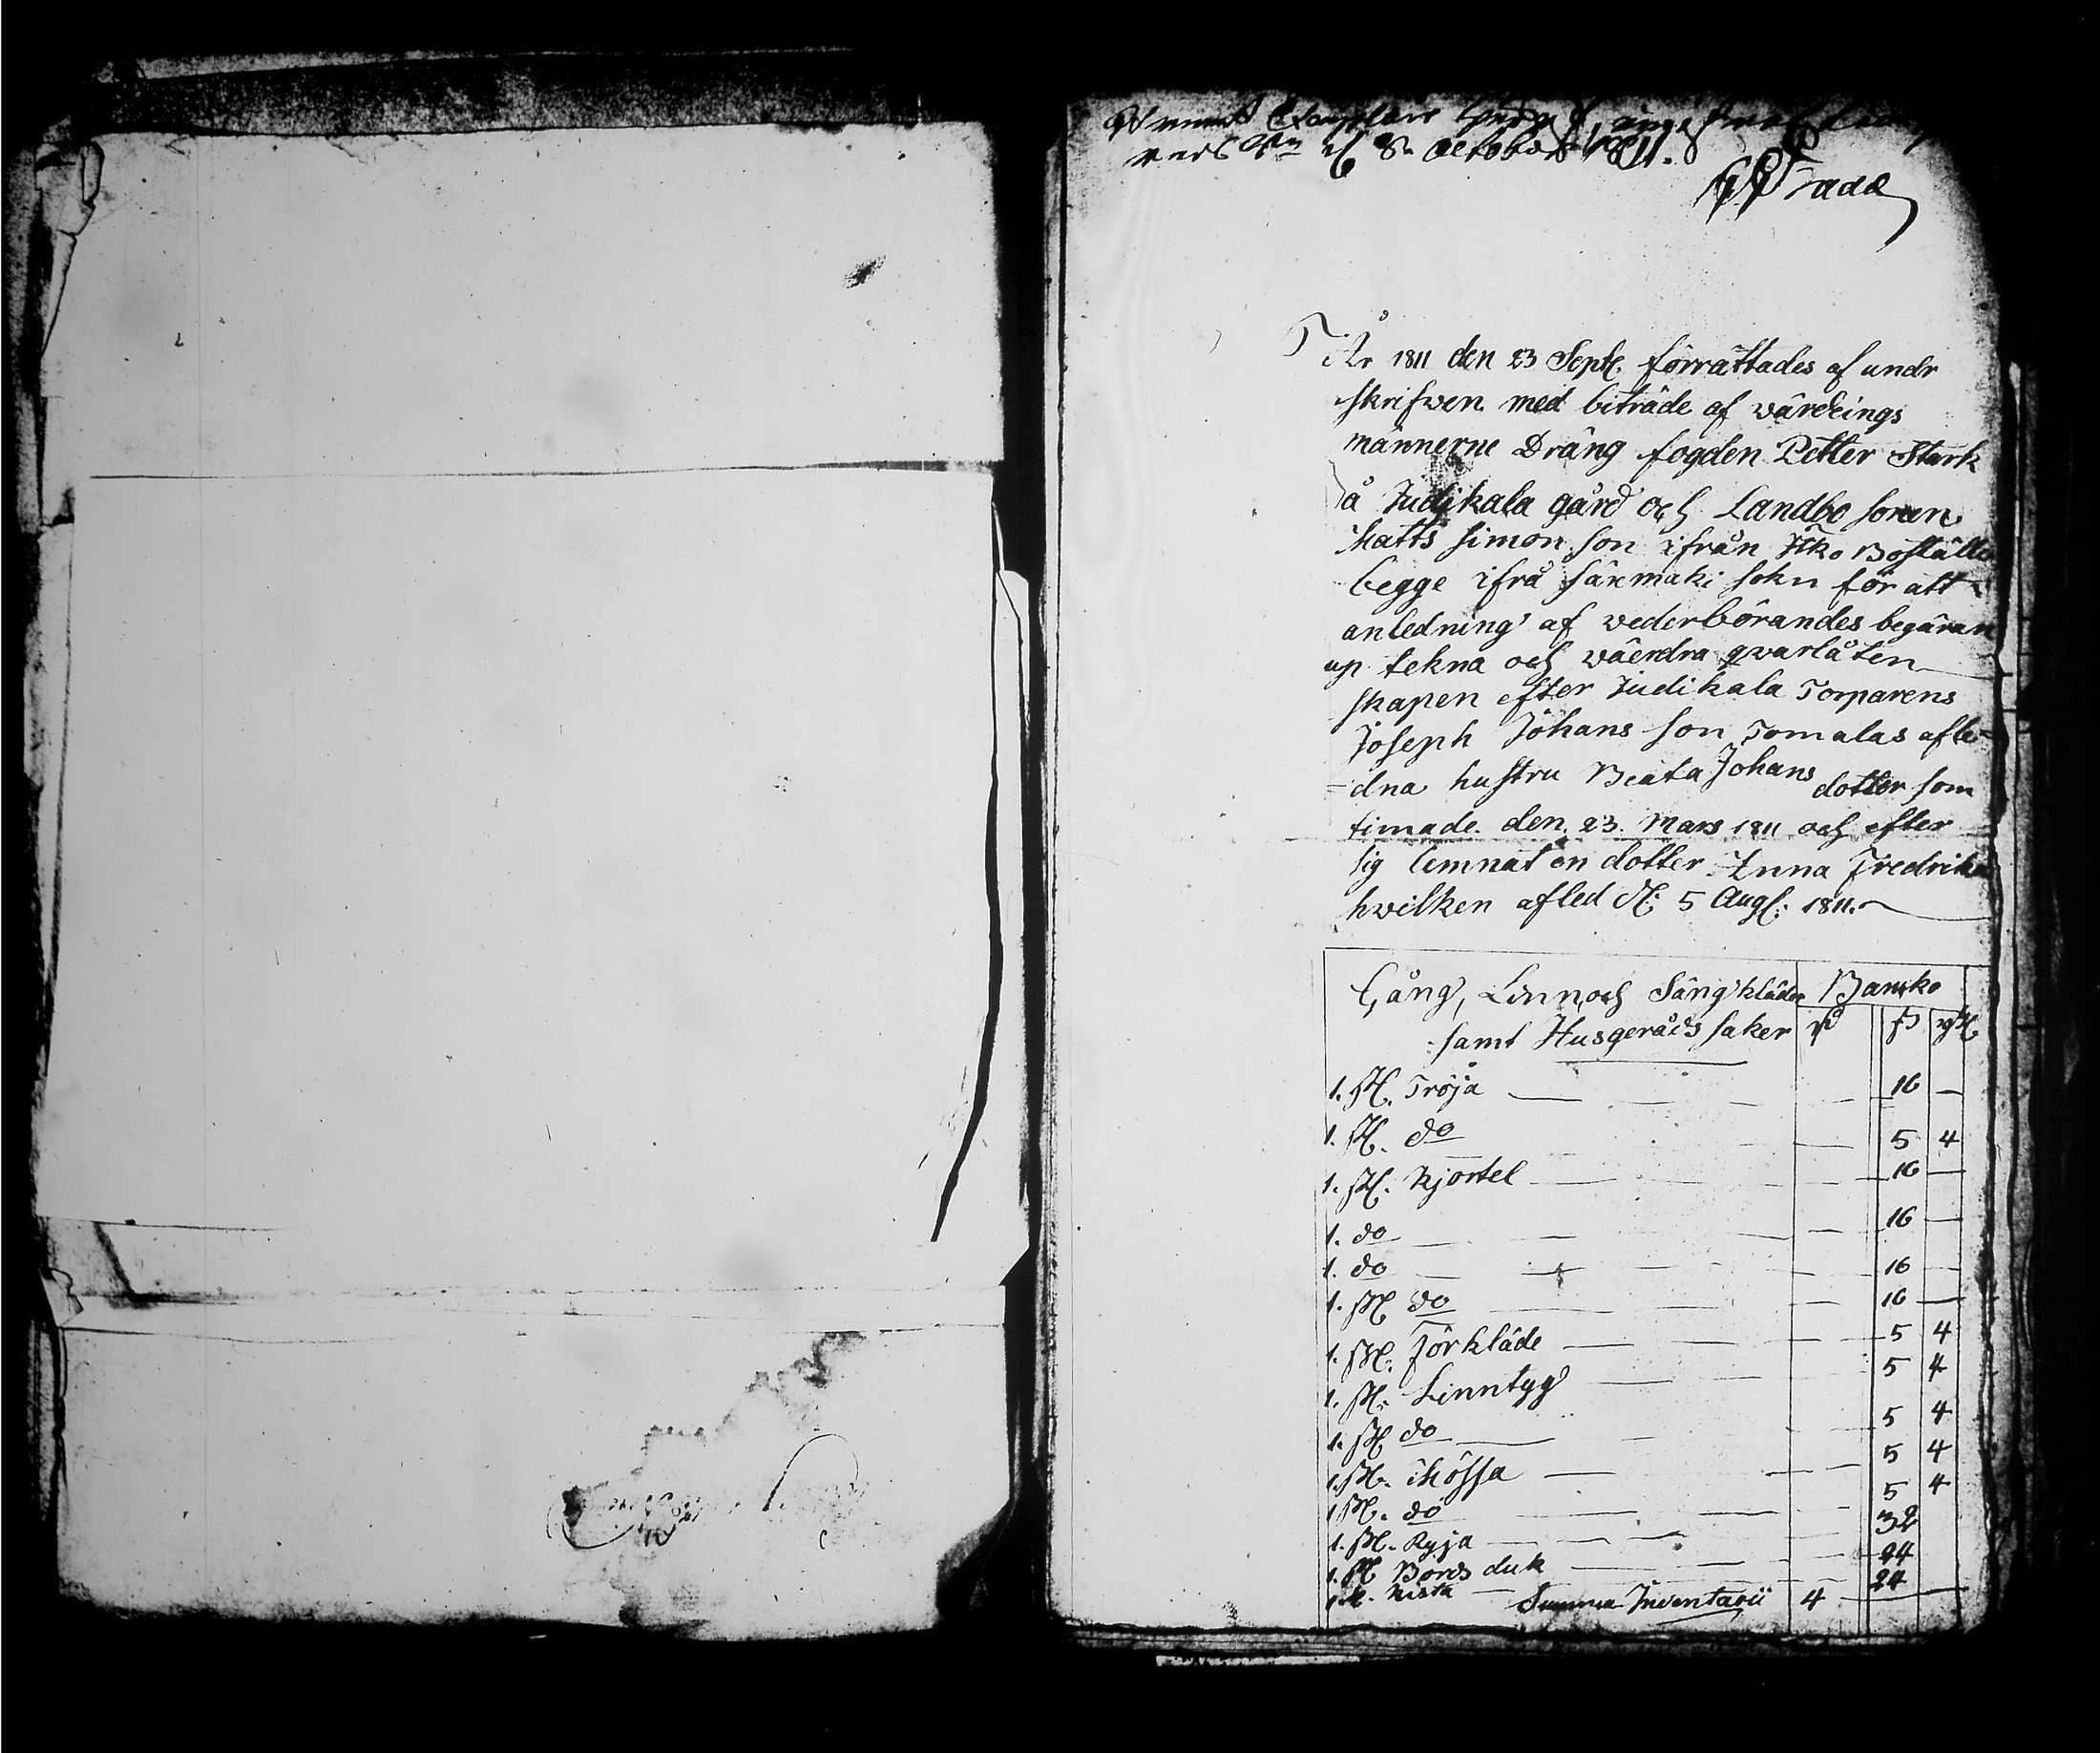 October 1811.
År 1811 den 23 Sept. förrättades af undr
skrifwen med biträde af wärdeings
männerne Dräng fogden Petter Stark
å Judikala gård och Landbo sonen
Matts Simon son ifrån Boställe
begge ifrå Säxmäki sokn för att
anledning af wederbörandes begäran
up tekna och wäerdra qwarlåten
skapen efter Judikala Torparens
Joseph Johans son Tomalas afle=
=dna hustru Beata Johans dotter som
timade den 23 Mars 1811 och efter
sig lemnat en dotter Anna Fredrika
hwilken afled d: 5 Aug: 1811.
Gång, Linn, och Sängkläder Banko
samt Husgeråds saker
1. st. Tröja 16 —
1. st. do 5 4
1. st. Kjortel 16 —
1. do 16 —
1. do 16 —
1. st do 16 —
1. st. Förkläde 5 4
1. st. Linntyg 5 4
1. st do 5 4
1. st. Mössa 5 4
1 st. do 5 4
1. st. Ryja 32
1. st Bords duk 24
1 st. Kista 24
Summa Inventarii 4 —